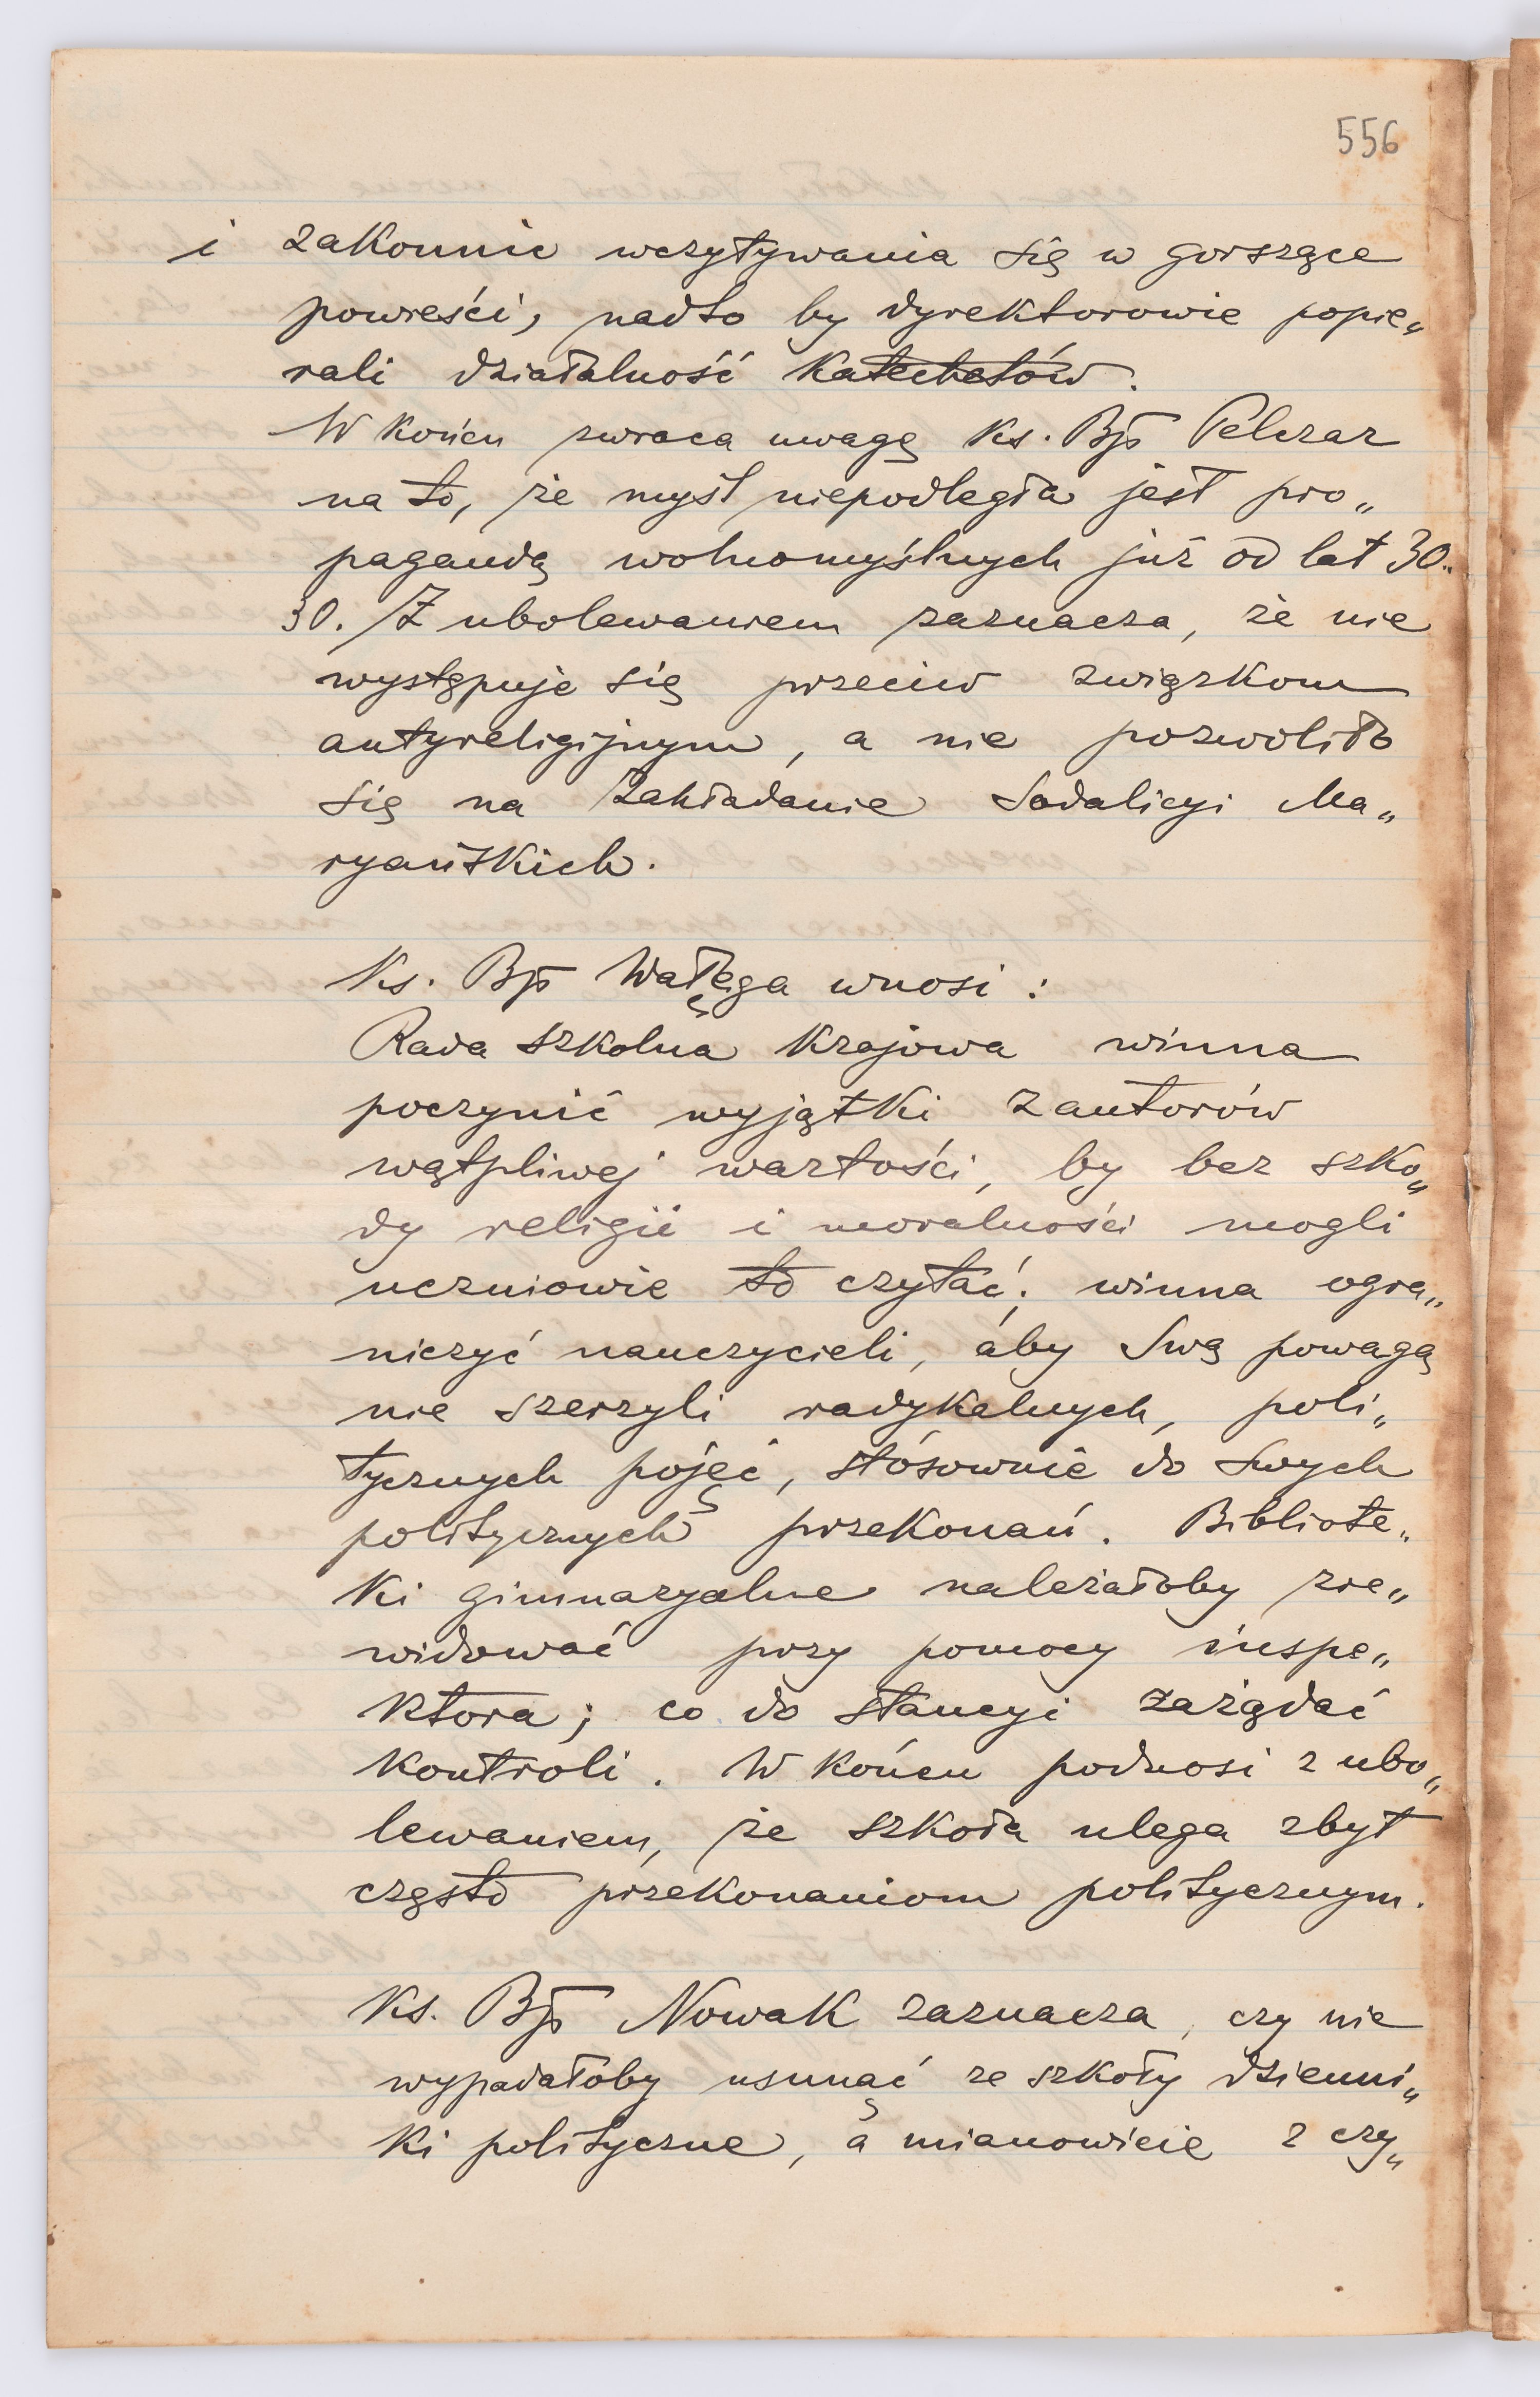 556
i zakonnic wczytywania się w gorszące
powieści, nadto by dyrektorowie popie„
rali działalność Katechetów.
W końcu zwraca uwagę Ks. Bp Pelczar
na to, że myśl niepodległa jest pro„
pagandą wolnomyślnych już od lat 30.
30. Z ubolewaniem zaznacza, że nie
występuje się przeciw związkom
antyreligijnym, a nie pozwoliło
się na Zakładanie Sodalicyi Ma„
ryańskich.
Ks. Bp Wałęga wnosi:
Rada szkolna Krajowa winna
poczynić wyjątki z autorów
wątpliwej wartości, by bez szko„
dy religii i moralności mogli
uczniowie to czytać; winna ogra„
niczyć nauczycieli, aby Swą powagą
nie szerzyli radykalnych, poli„
tycznych pojęć, stósownie do Swych
politycznych przekonań. Bibliote„
Ki gimnazyalne należałoby zre„
widować przy pomocy inspe„
Ktora; co do stancyi zażądać
Kontroli. W Końcu podnosi z ubo„
lewaniem, że szkoła ulega zbyt
często przekonaniom politycznym.
Ks. Bp Nowak zaznacza, czy nie
wypadałoby usunąć ze szkoły dzienni„
Ki polityczne, a mianowicie z czy„